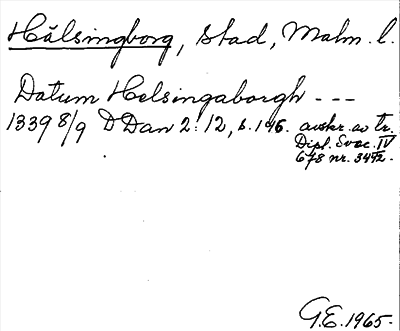 Hälsingborg, stad, Malm. l.
Datum Helsingaborgh ---
1339 8/9 DDan 2:12, s. 196. avskr. av tr.
Dipl. Svec. IV
678 nr. 3492.
G.E. 1965.